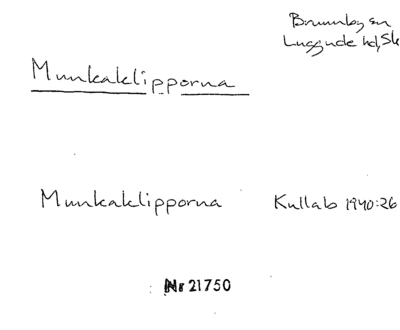 Brunnby sn
Luggude hd, Sk
Munkaklipporna
Munkaklipporna Kullab 1940:26
Nr 21750